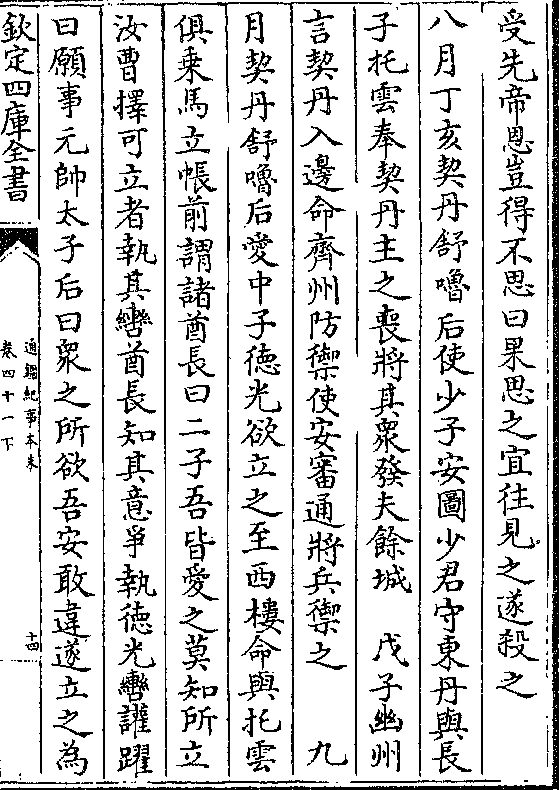 受先帝恩豈得不思曰果思之宜往見之遂殺之
八月丁亥契丹舒嚕后使少子安圖少君守東丹與長
子托雲奉契丹主之喪將其衆發夫餘城　戊子幽州
言契丹入邊命齊州防禦使安審通將兵禦之　九
月契丹舒嚕后愛中子德光欲立之至西樓命與托雲
俱乗馬立帳前謂諸酋長曰二子吾皆愛之莫知所立
汝曹擇可立者執其轡酋長知其意爭執德光轡讙躍
曰願事元帥太子后曰衆之所欲吾安敢違遂立之為
欽定四庫全書
通鑑紀事本末
卷四十一下
十四